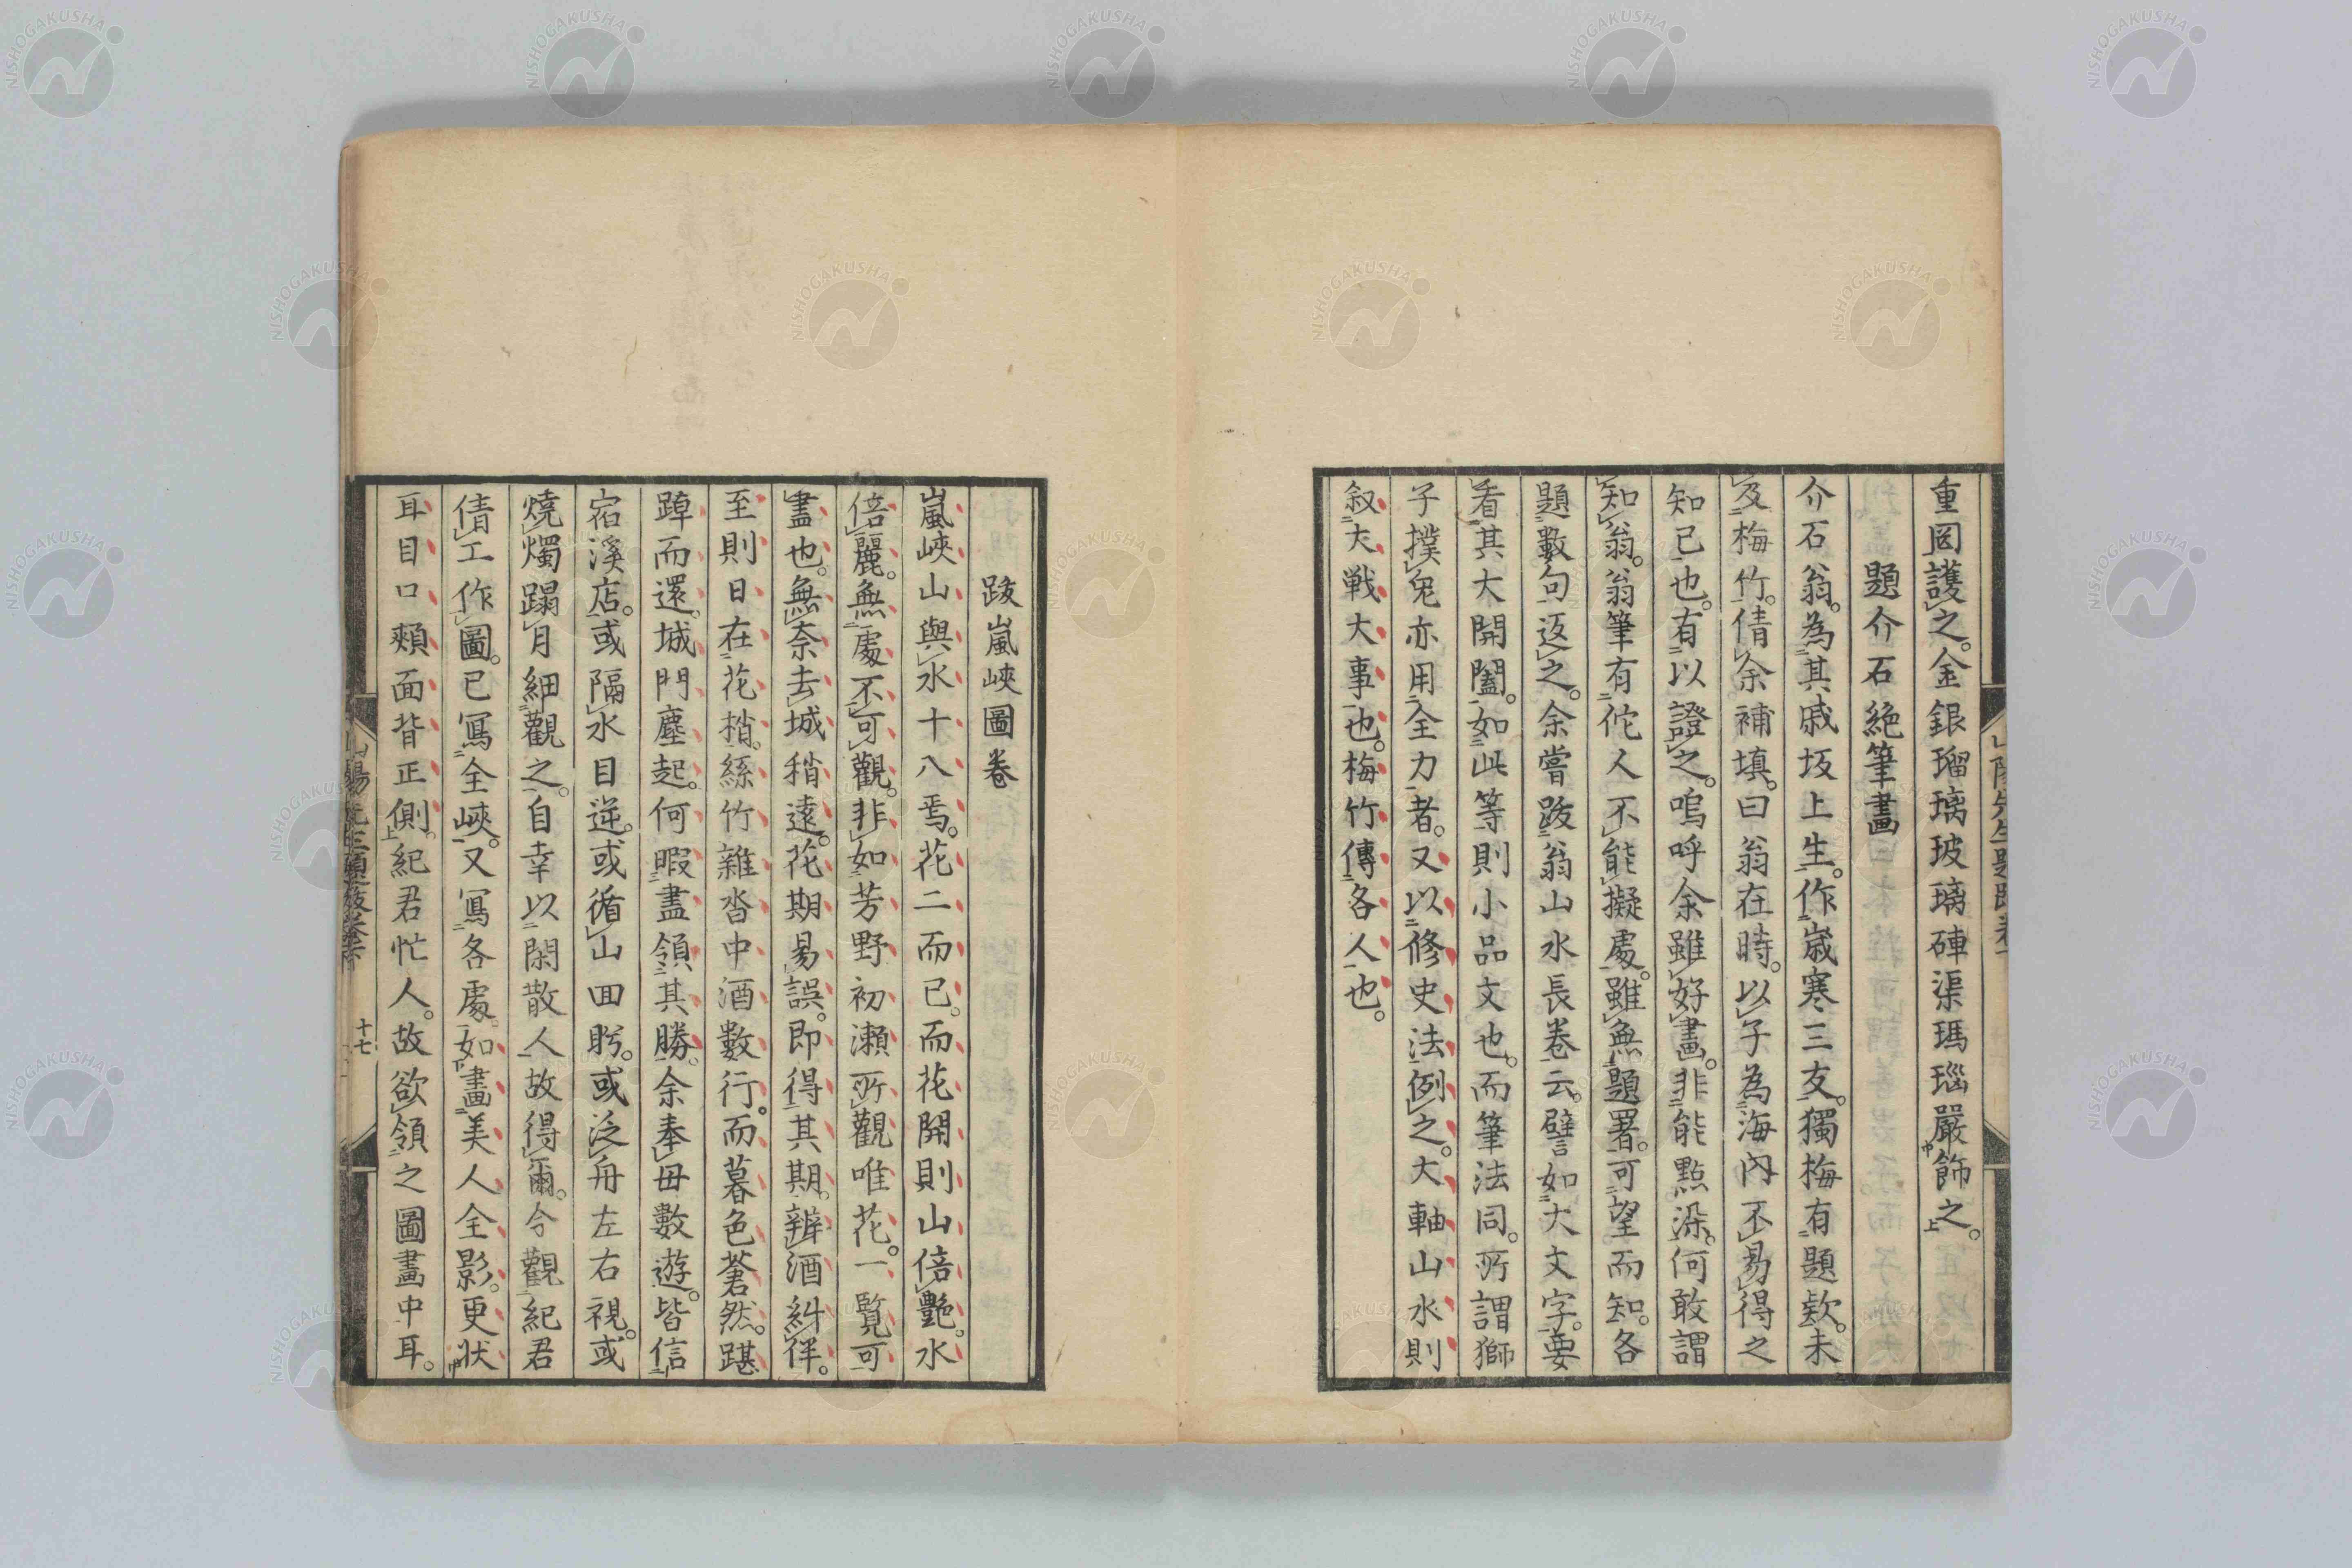 重罔護之。金銀瑠璃玻璃硨渠瑪瑙嚴飾之。
題介石絶筆畫
介石翁。為其戚坂上生。作歳寒三友。獨梅有題欵。未
及梅竹。倩余補填。曰翁在時。以子為海內不易得之
知己也。有以證之。嗚呼余雖好畫。非能點染。何敢謂
知翁。翁筆有佗人不能擬處。雖無題署。可望而知。各
題數句返之。余嘗跋翁山水長卷云。譬如大文字。要
看其大開闔。如此等則小品文也。而筆法同。所謂獅
子撲兔亦用全力者。又以修史法例之。大軸山水則
叙大戦大事也。梅竹傳各人也。
跋嵐峽圖卷
嵐峽山與水十八焉。花二而已。而花開則山倍艷。水
倍麗。無處不可觀。非如芳野初瀬所觀唯花。一覧可
盡也。無奈去城稍遠。花期易誤。即得其期。辦酒糾伴。
至則日在花梢。絲竹雜沓中酒數行。而暮色蒼然。踸
踔而還。城門塵起。何暇盡領其勝。余奉母數遊。皆信
宿溪店。或隔水目逆。或循山回眄。或泛舟左右視。或
燒燭蹋月細觀之。自幸以閑散人故得爾。今觀紀君
倩工作圖。已寫全峽。又寫各處。如畫美人全影。更状
耳目口頰面背正側。紀君忙人。故欲領之圖畫中耳。
十七